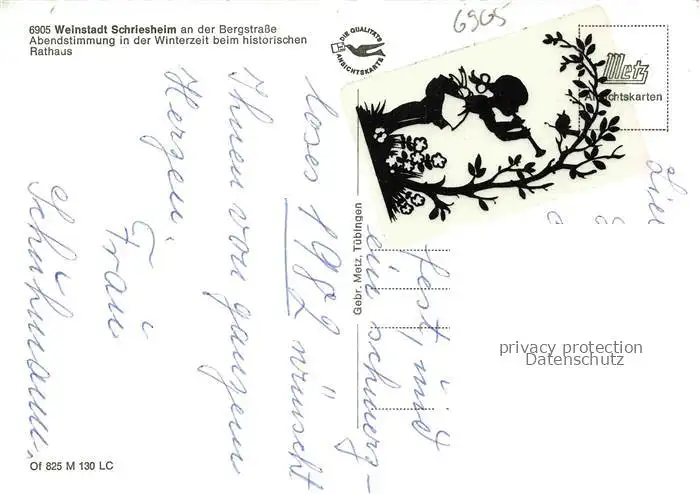 6905 Weinstadt Schriesheim an der Bergstraße
Abendstimmung in der Winterzeit beim historischen
Rathaus
DIE QUALITÄTS
ANSICHTSKARTE
6905
Metz
Ansichtskarten
Gebr. Metz, Tübingen
Of 825 M 130 LC
privacy protection
Datenschutz
Lie
fest, und
ein schmerz-
loses 1982 wünscht
Ihnen von ganzem
Herzen.
Frau
Schuhmann.